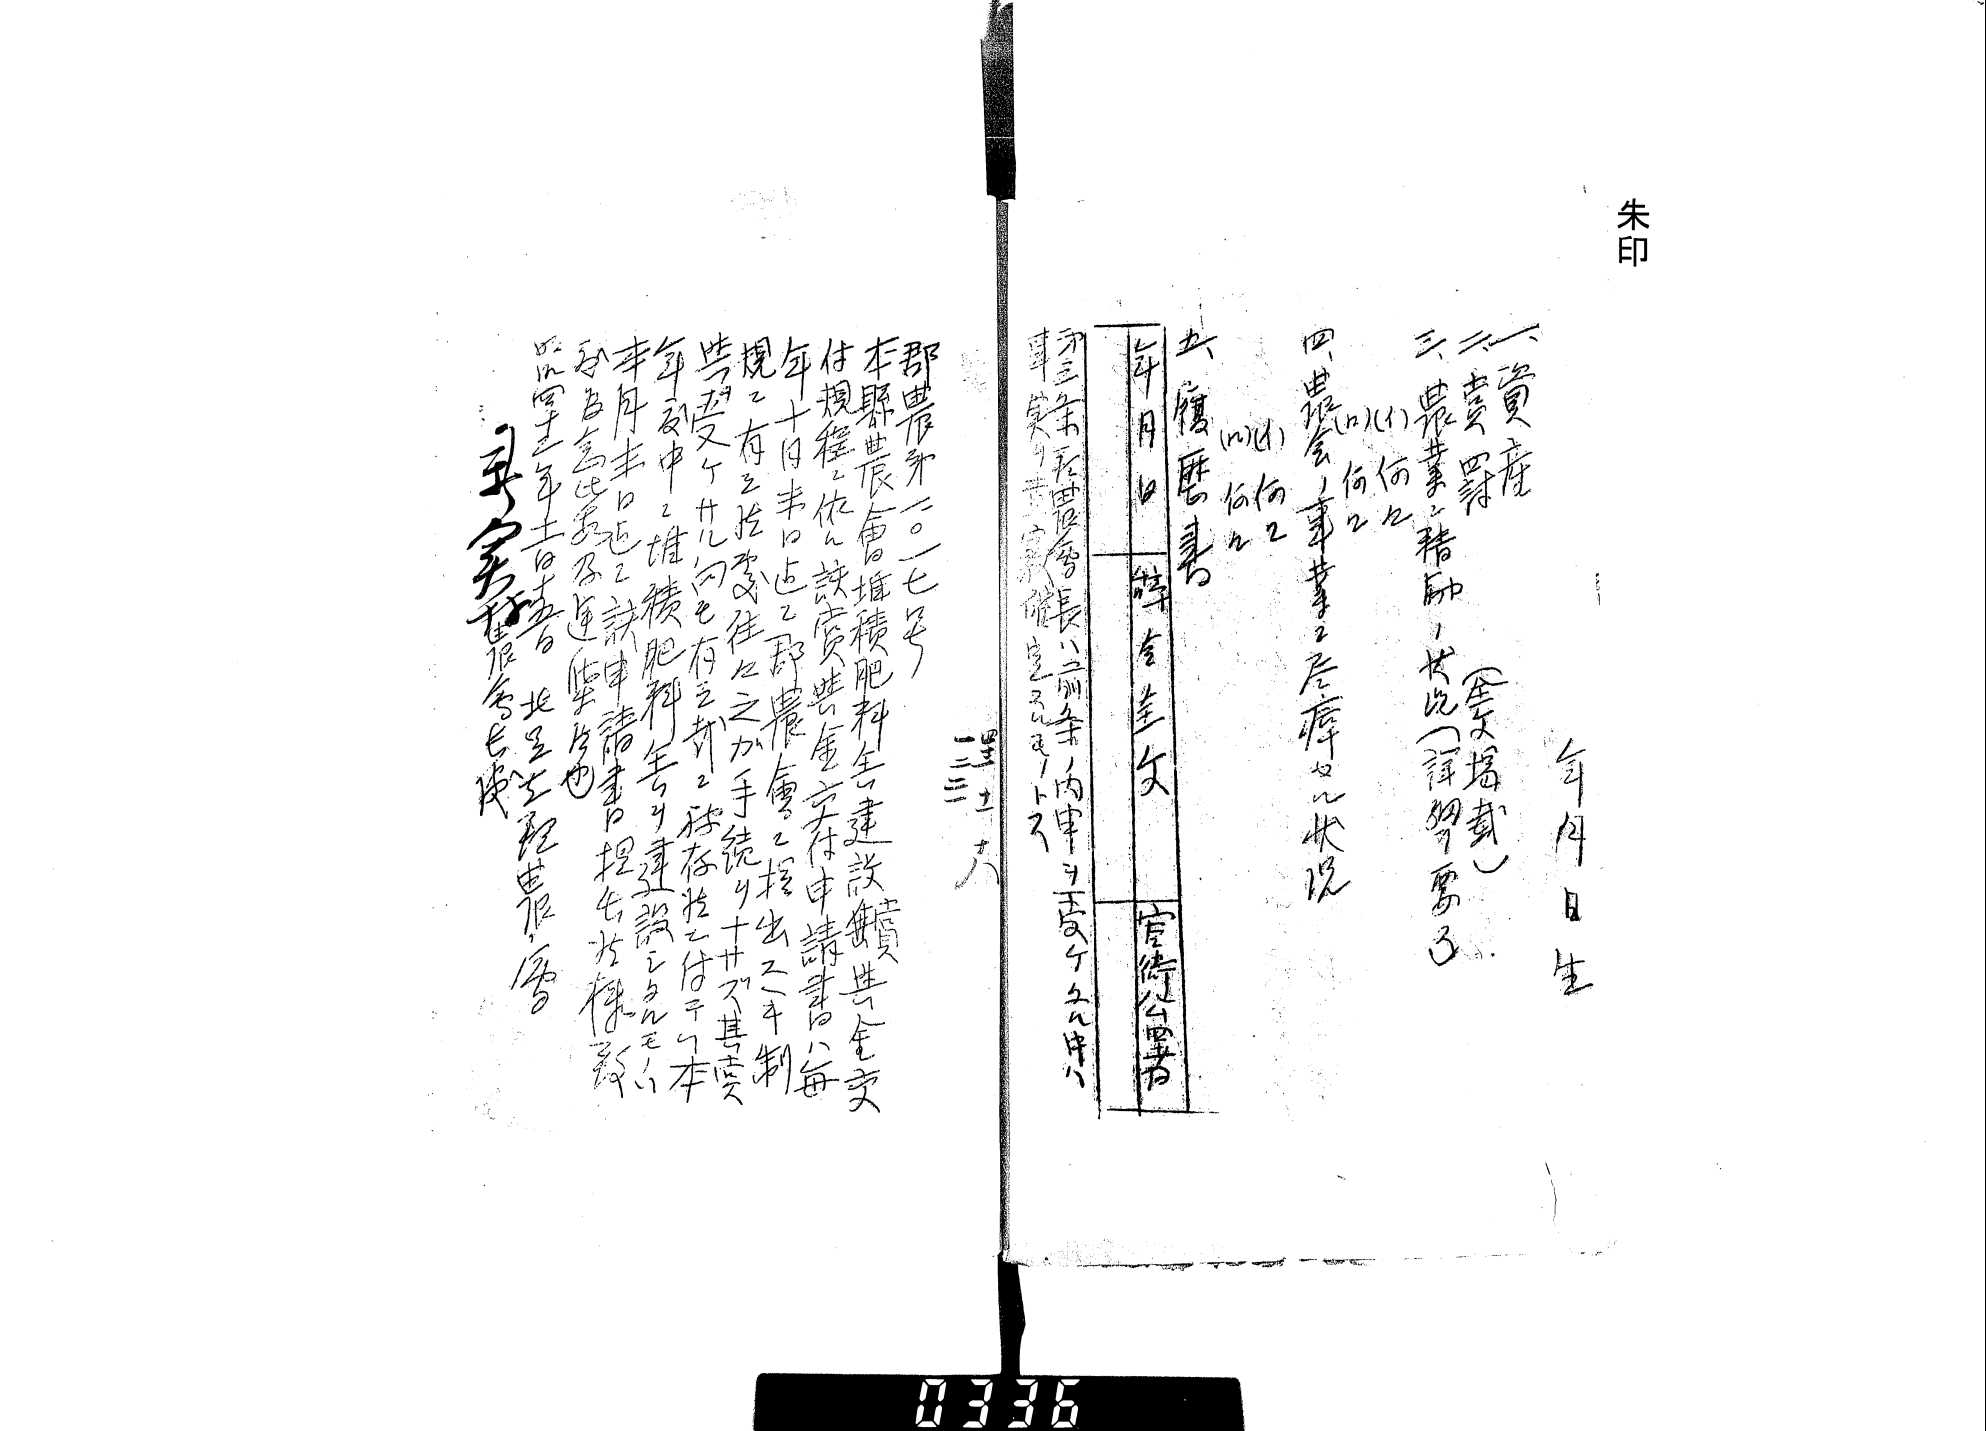 朱印
年月日生
一、資産
二、賞罰 (全文掲載)
三、農業ニ精励ノ状況(詳細ヲ要ス)
(イ) 何々
(ロ) 何々
四、農会ノ事業ニ尽瘁セル状況
(イ) 何々
(ロ) 何々
五、履歴書
年月日 辞令全文 官衙公署名
第三条 農會長ハ前条ノ内申ヲ受ケタル中ハ
事実ヲ スルモノトス
郡農第二〇一七号
本縣農會堆積肥料舎建設奨励金交
付規程ニ依ル該賞與金交付申請書ハ毎
年十月末日迄ニ郡農會ニ提出スベキ制
規ニ有之候處往々之ガ手続ヲナサズ其賞
與ヲ受ケザル向モ有之哉ニ被存候ニ付テハ本
年度中ニ堆積肥料舎ヲ建設シタルモノハ
本月末日迄ニ該申請書提出候様致
度為念此段及通牒候也
明治四十三年十一月十五日 北足立郡農會
農會長殿